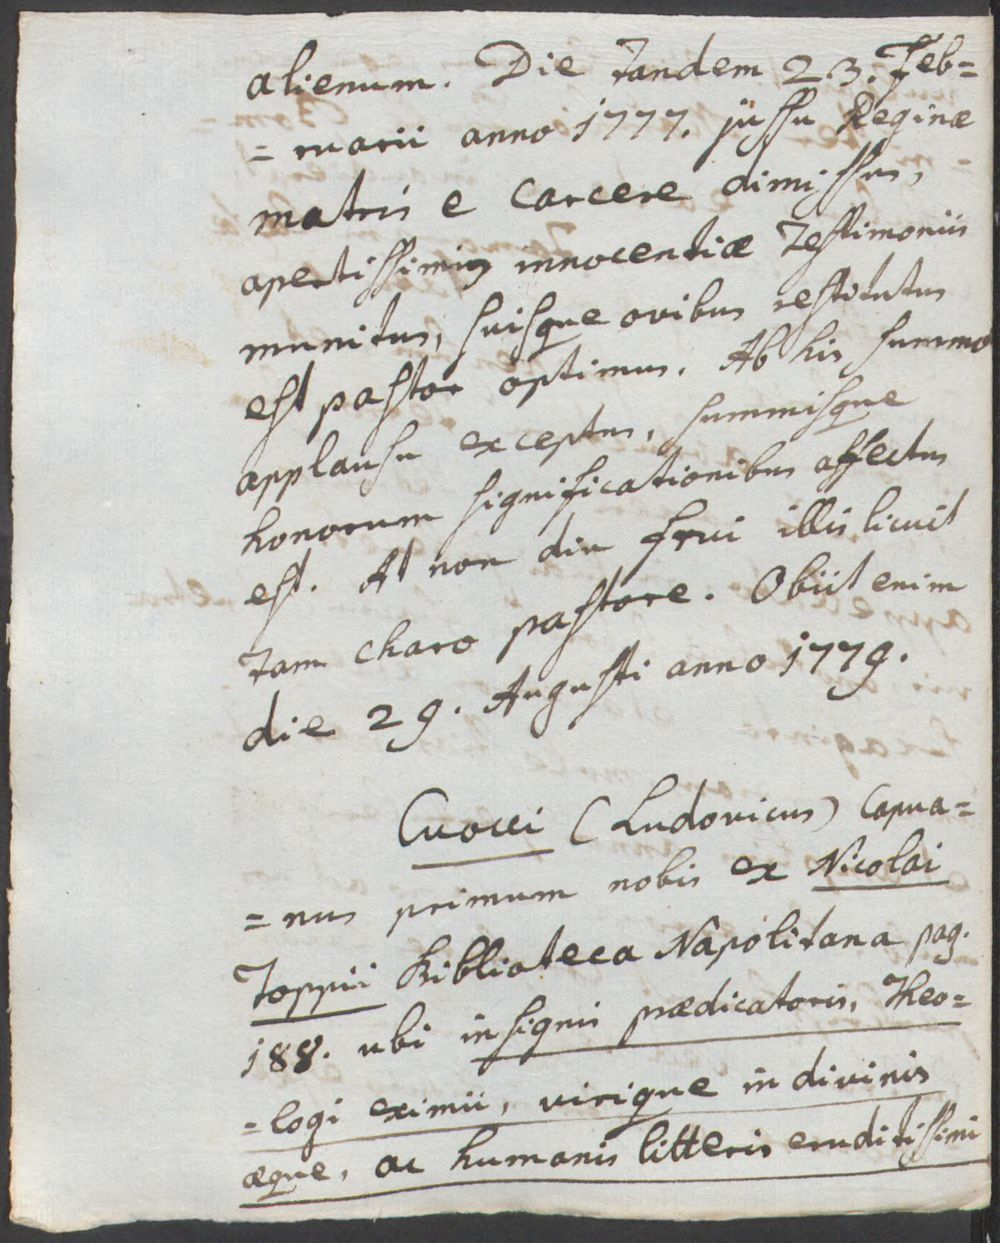 alienum. Die tandem 23. Feb=
= ruarii anno 1777. jussu Reginæ
matris e carcere dimissus,
apertissimis innocentiæ testimoniis
munitus, suisque ovibus restitutus
est pastor optimus. Ab his summo
applausu exceptus, summisque
honorum significationibus affectus
est. At non diu frui illis licuit
tam charo pastore. Obiit enim
die 29. Augusti anno 1779.
Cuocci (Ludovicus) Capua=
= nus primum nobis ex Nicolai
Toppii Biblioteca Napolitana pag.
188. ubi insignis prædicatoris, Theo=
= logi eximii, virique in divinis
æque, ac humanis litteris eruditissimi